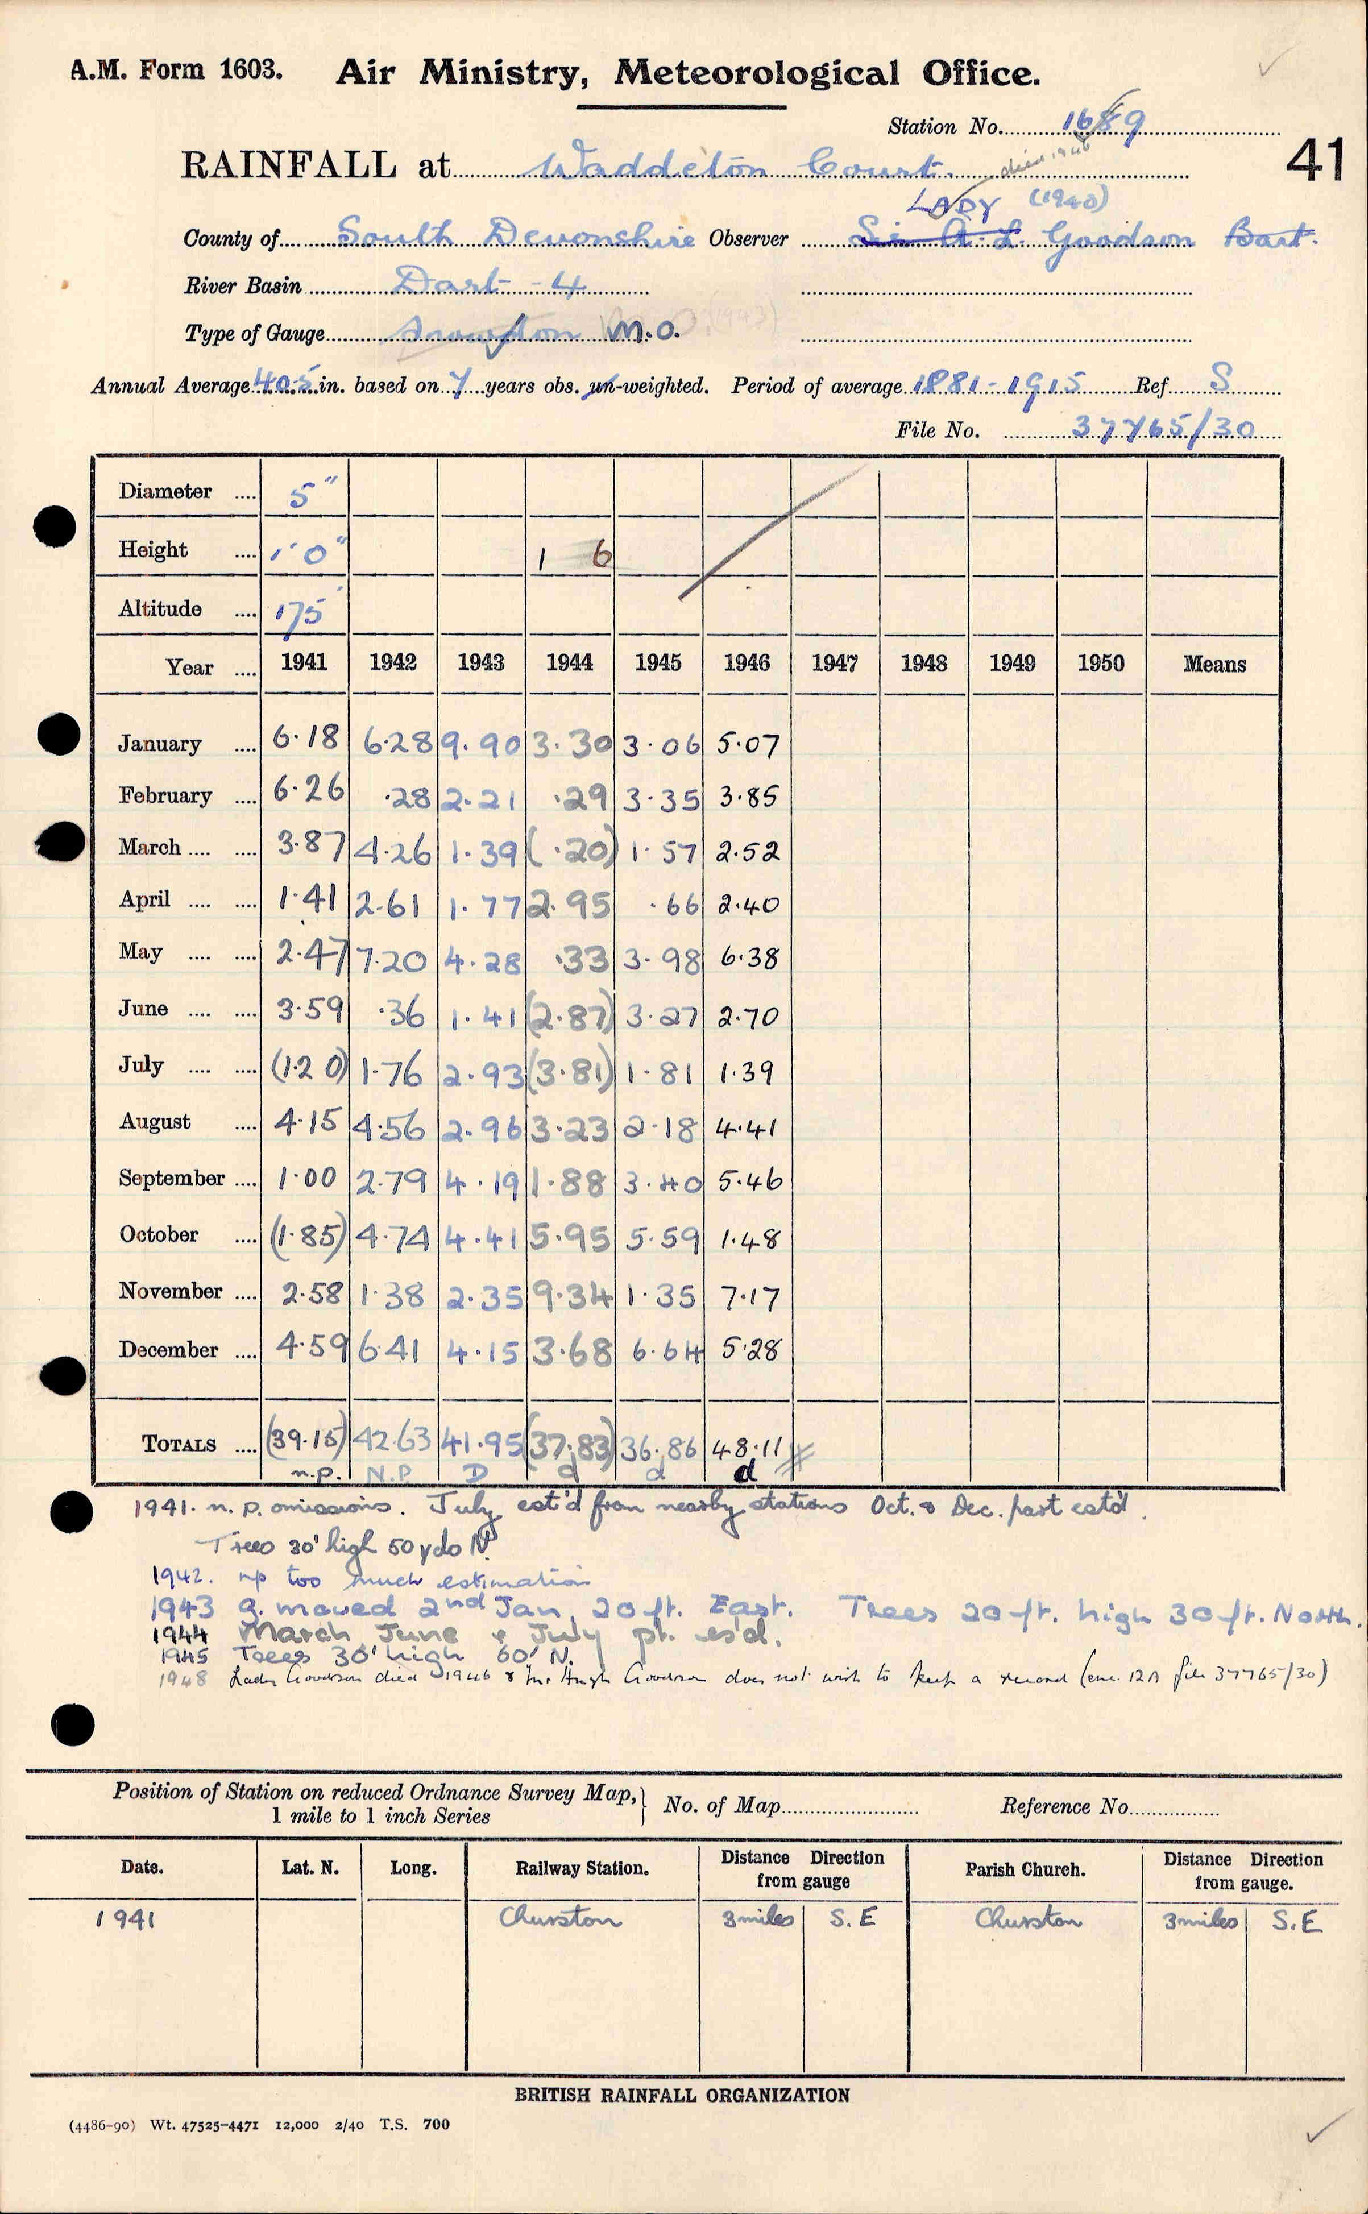 A.M. Form 1603. Air Ministry, Meteorological Office.
Station No. 1689
41
RAINFALL at Waddeton Court. died 1946
LADY (1940)
County of South Devonshire Observer Sir A. L. Goodson Bart.
River Basin Dart - 4
Type of Gauge Snowdon M.O. (1943)
Annual Average 40.5 in. based on 7 years obs. un-weighted. Period of average 1881-1915 Ref S
File No. 37765/30
Diameter .... 5"
Height .... 1' 0" 1 6
Altitude .... 175'
Year .... 1941 1942 1943 1944 1945 1946 1947 1948 1949 1950 Means
January .... 6.18 6.28 9.90 3.30 3.06 5.07
February .... 6.26 .28 2.21 .29 3.35 3.85
March .... .... 3.87 4.26 1.39 (.20) 1.57 2.52
April .... .... 1.41 2.61 1.77 2.95 .66 2.40
May .... .... 2.47 7.20 4.28 .33 3.98 6.38
June .... .... 3.59 .36 1.41 (2.87) 3.27 2.70
July .... .... (1.20) 1.76 2.93 (3.81) 1.81 1.39
August .... 4.15 4.56 2.96 3.23 2.18 4.41
September .... 1.00 2.79 4.19 1.88 3.40 5.46
October .... (1.85) 4.74 4.41 5.95 5.59 1.48
November .... 2.58 1.38 2.35 9.34 1.35 7.17
December .... 4.59 6.41 4.15 3.68 6.64 5.28
TOTALS .... (39.15) 42.63 41.95 (37.83) 36.86 48.11
n.p. N.P. D d d d
1941. n.p. omissions. July est'd from nearby stations Oct. & Dec. part est'd.
Trees 30' high 50 yds N.
1942. np too much estimation
1943 g. moved 2nd Jan, 20 ft. East. Trees 20 ft. high 30 ft. North.
1944 March, June & July pt. es'd.
1945 Trees 30' high 60' N.
1948 Lady Goodson died 1946 & Mr. Hugh Goodson does not wish to keep a record (enc. 12A file 37765/30)
Position of Station on reduced Ordnance Survey Map, 1 mile to 1 inch Series } No. of Map Reference No.
Date. Lat. N. Long. Railway Station. Distance Direction from gauge Parish Church. Distance Direction from gauge.
1941 Churston 3 miles S.E Churston 3 miles S.E
BRITISH RAINFALL ORGANIZATION
(4486-90) Wt. 47525-4471 12,000 2/40 T.S. 700